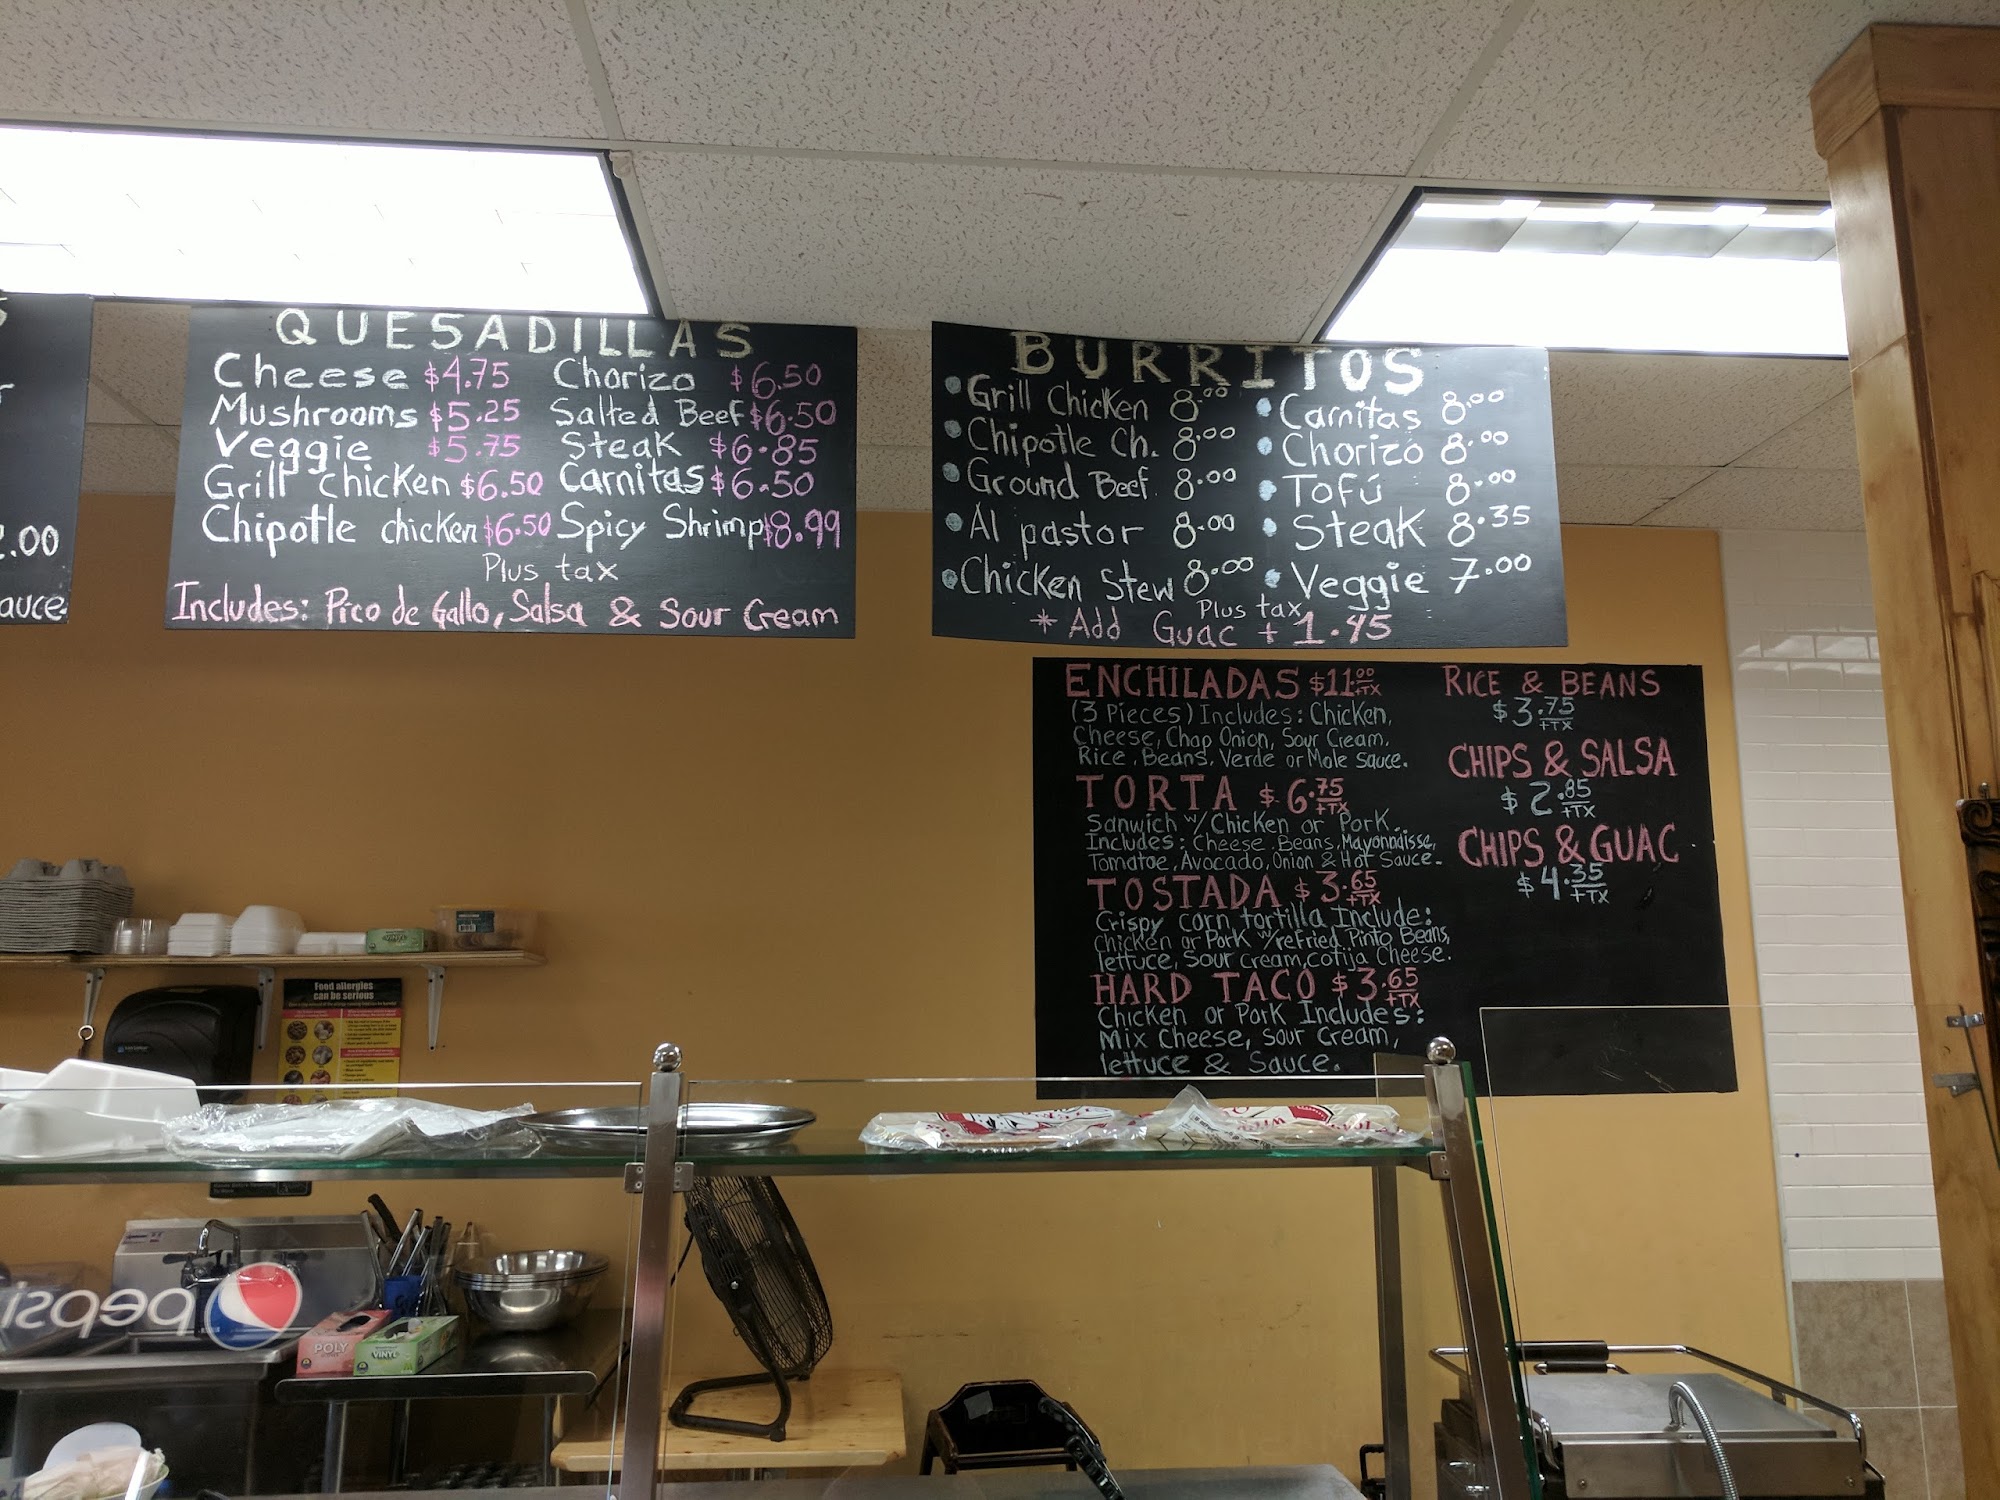 .00
auce.
QUESADILLAS
Cheese $4.75 Chorizo $6.50
Mushrooms $5.25 Salted Beef $6.50
Veggie $5.75 Steak $6.85
Grill chicken $6.50 Carnitas $6.50
Chipotle chicken $6.50 Spicy Shrimp $8.99
Plus tax
Includes: Pico de Gallo, Salsa & Sour Cream
BURRITOS
Grill Chicken 8.00 Carnitas 8.00
Chipotle Ch. 8.00 Chorizo 8.00
Ground Beef 8.00 Tofú 8.00
Al pastor 8.00 Steak 8.35
Chicken Stew 8.00 Veggie 7.00
Plus tax
* Add Guac + 1.45
ENCHILADAS $11.00 +TX
(3 Pieces) Includes: Chicken,
Cheese, Chap Onion, Sour Cream,
Rice, Beans, Verde or Mole Sauce.
TORTA $6.75 +TX
Sanwich w/ Chicken or Pork.
Includes: Cheese, Beans, Mayonnaisse,
Tomatoe, Avocado, Onion & Hot Sauce.
TOSTADA $3.65 +TX
Crispy corn tortilla Include:
Chicken or Pork w/refried Pinto Beans,
lettuce, Sour cream, cotija Cheese.
HARD TACO $3.65 +TX
Chicken or Pork Includes:
Mix Cheese, Sour Cream,
lettuce & Sauce.
RICE & BEANS
$3.75 +TX
CHIPS & SALSA
$2.85 +TX
CHIPS & GUAC
$4.35 +TX
Food allergies
can be serious
pepsi
POLY
VINYL